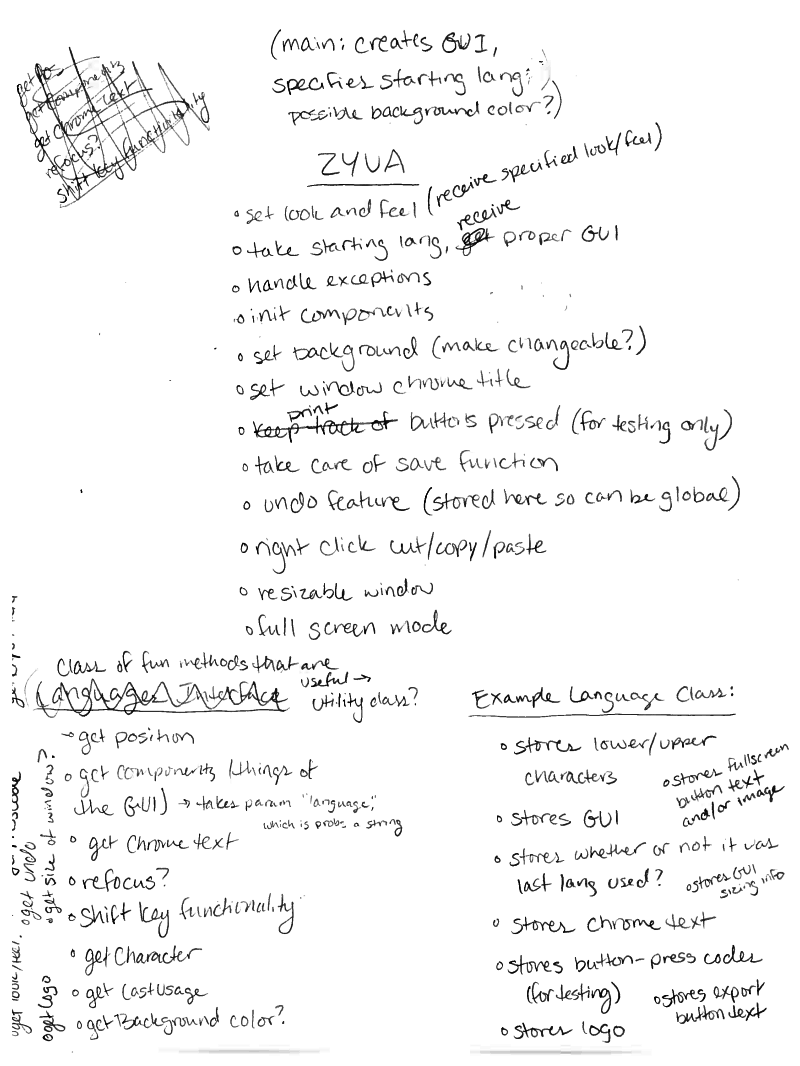 (main: creates GUI,
specifies starting lang;
possible background color?)
get pos
get components
get chrome text
refocus?
shift key functionality
ZYUA
• set look and feel (receive specified look/feel)
• take starting lang, receive proper GUI
• handle exceptions
• init components
• set background (make changeable?)
• set window chrome title
• keep track of print buttons pressed (for testing only)
• take care of save function
• undo feature (stored here so can be global)
• right click cut/copy/paste
• resizable window
• full screen mode
Class of fun methods that are
useful →
Languages Interface utility class?
• get position
• get components (things of
the GUI) → takes param "language,"
which is probs a string
• get Chrome text
• refocus?
• Shift key functionality
• get Character
• get Last Usage
• get Background color?
• get look/feel
• get logo
• get undo
• get size of window?
Example Language Class:
• stores lower/upper
characters
• stores fullscreen
button text
and/or image
• stores GUI
• stores whether or not it was
last lang used?
• stores GUI
sizing info
• stores Chrome text
• stores button-press codes
(for testing)
• stores export
button text
• stores logo